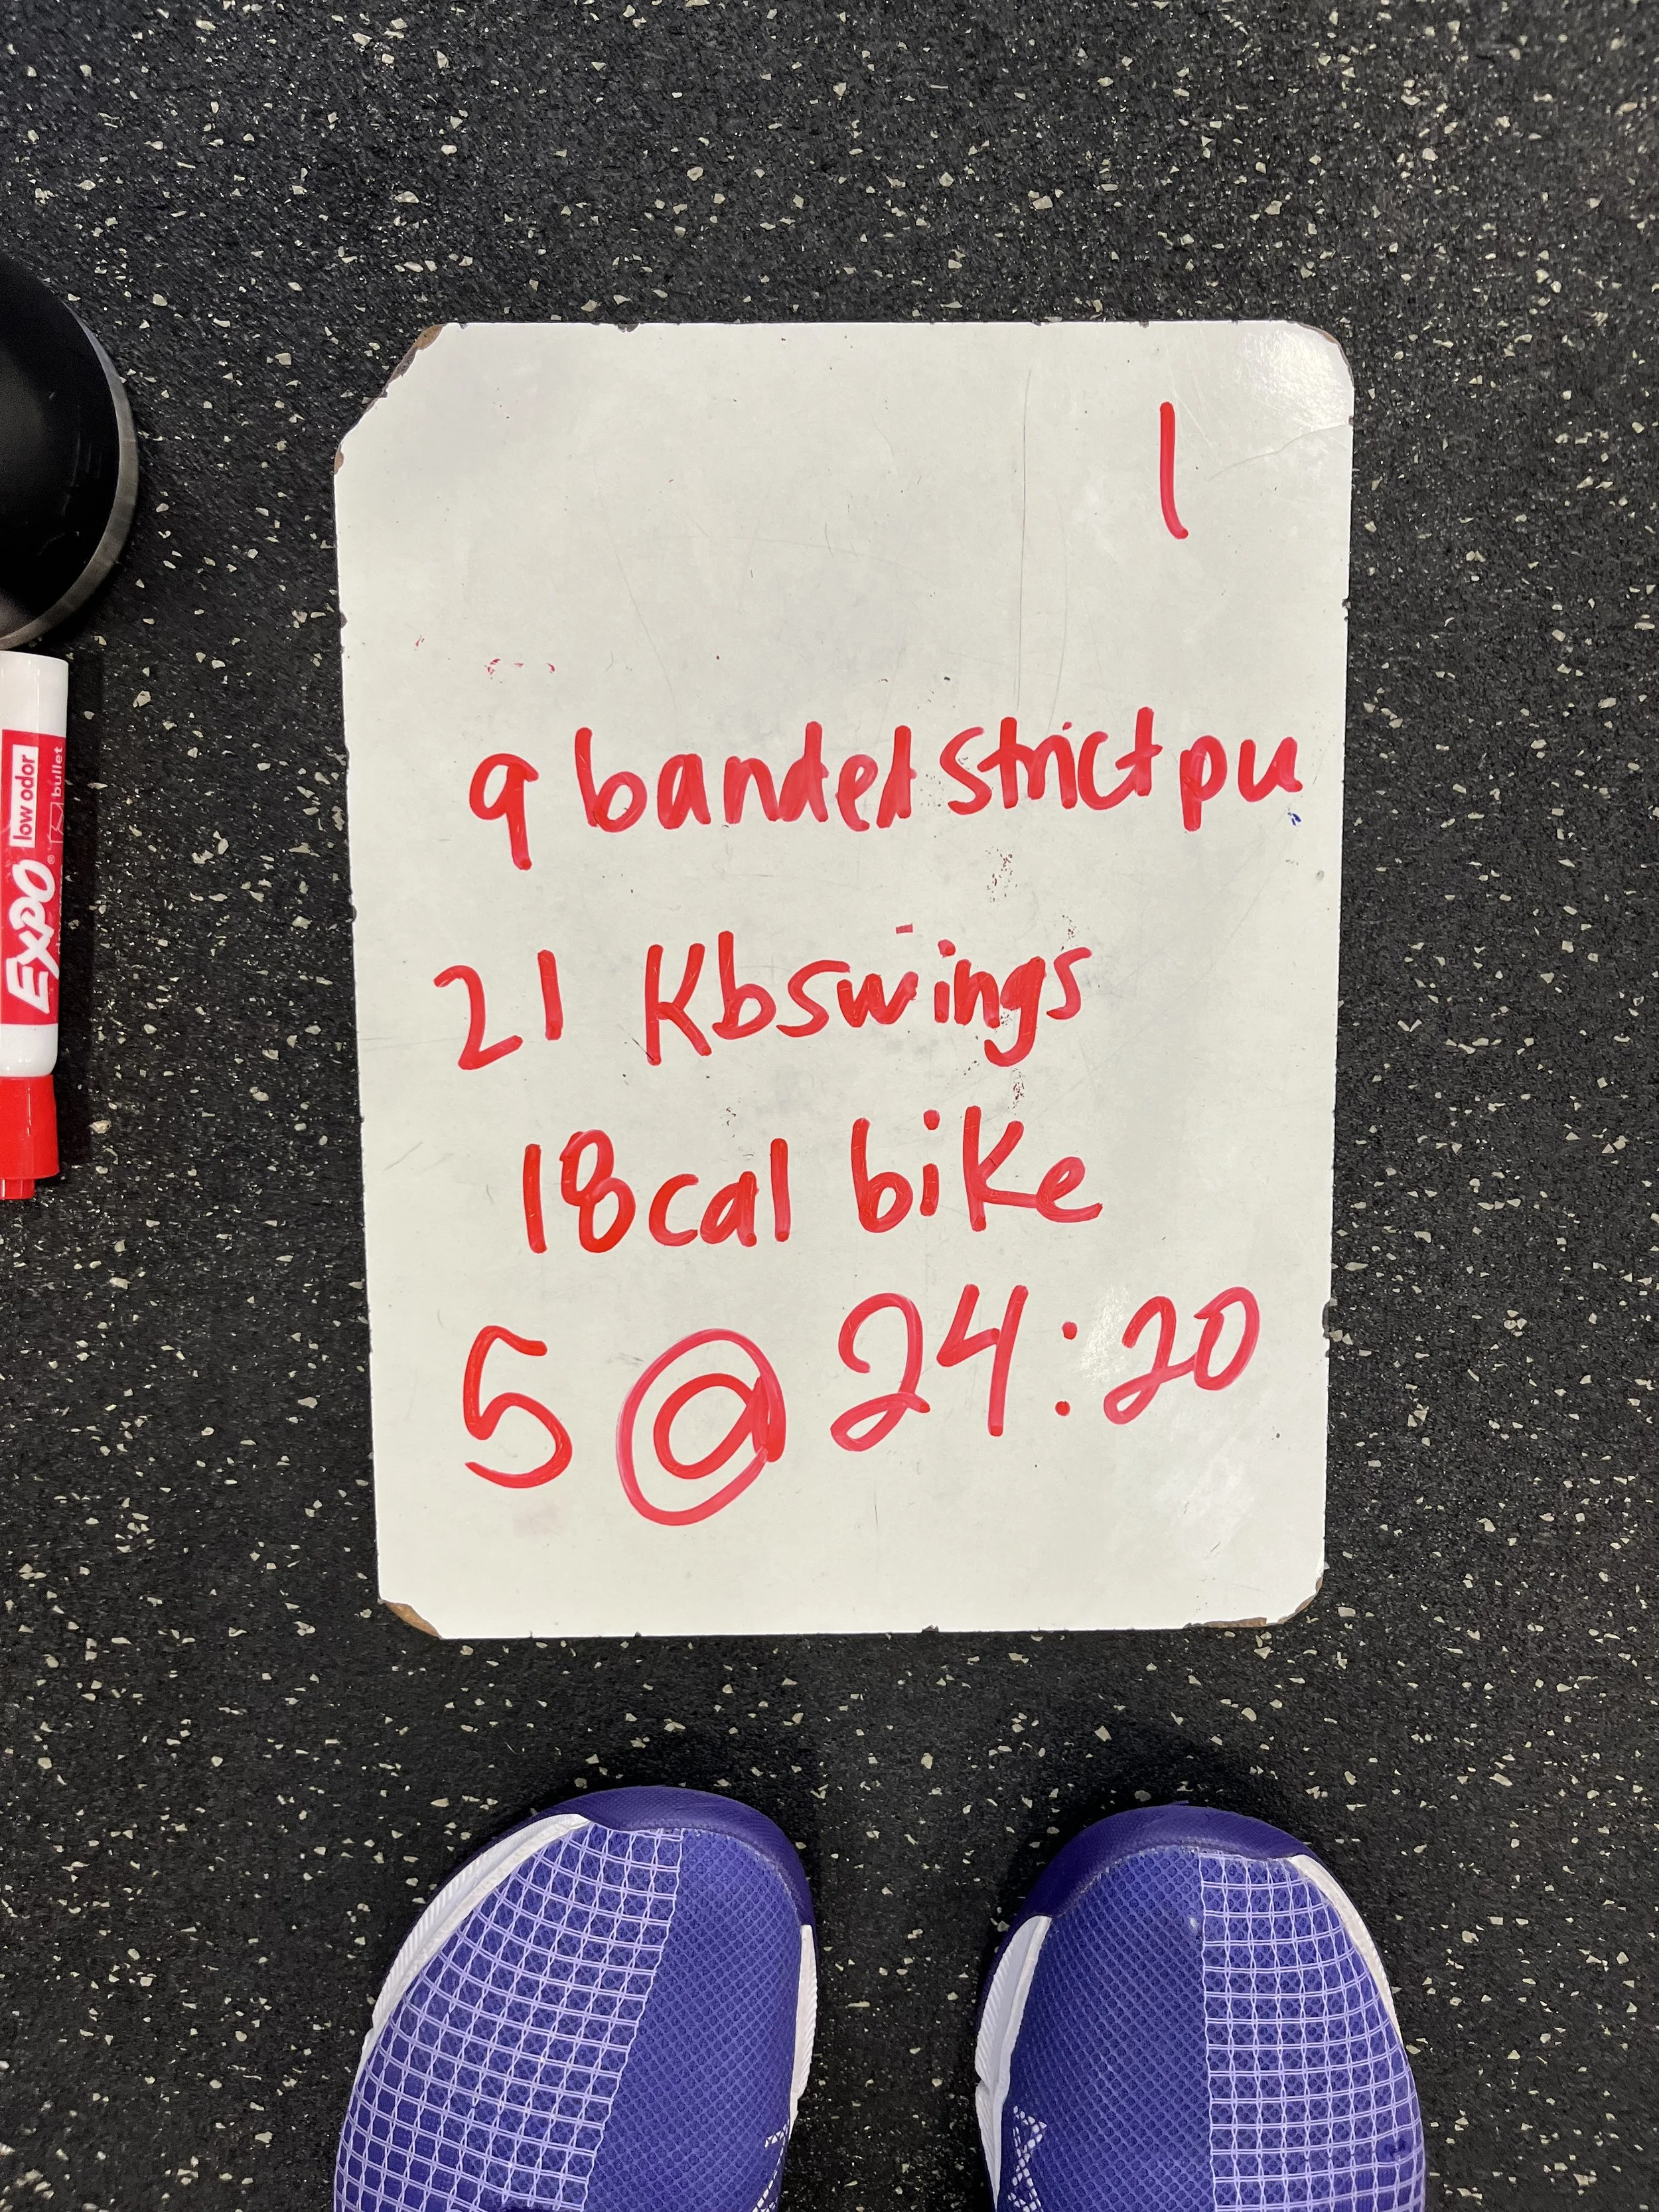 1
9 banded strict pu
21 Kbswings
18cal bike
5 @ 24:20
EXPO®
low odor
bullet